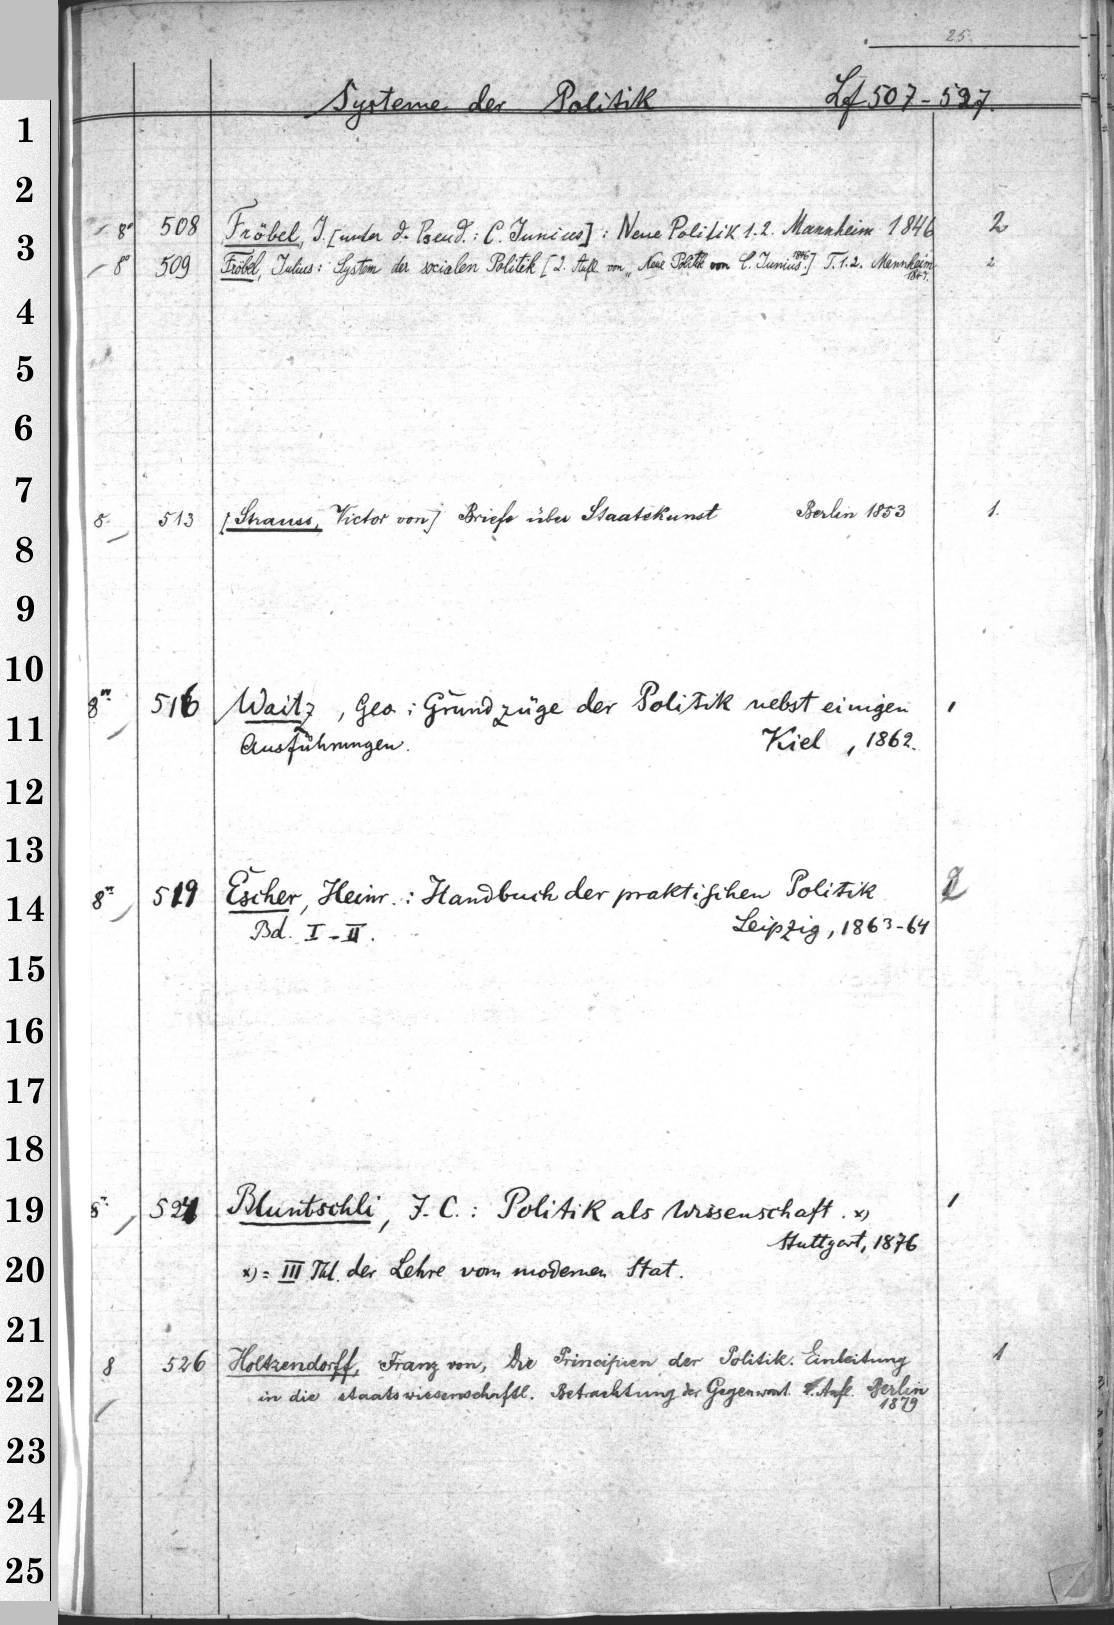 25.
Systeme der Politik Lf 507-527.
1
2
8° 508 Fröbel, J. [unter d. Pseud.: C. Junius] : Neue Politik 1.2. Mannheim 1846 2
3
8° 509 Fröbel, Julius: System der socialen Politik [2. Aufl. von „Neue Politik von C. Junius" 1846] T.1.2. Mannheim 2
1847.
4
5
6
7
8. 513 [Strauss, Victor von] Briefe über Staatskunst Berlin 1853 1.
8
9
10
8° 516 Waitz, Geo : Grundzüge der Politik nebst einigen 1
11 Ausführungen. Kiel, 1862.
12
13
14 8° 519 Escher, Heinr. : Handbuch der praktischen Politik 2
Bd. I-II. Leipzig, 1863-64
15
16
17
18
19 8° 521 Bluntschli, J. C. : Politik als Wissenschaft. x) 1
Stuttgart, 1876
20 x) = III Thl. der Lehre vom modernen Stat.
21
8 526 Holtzendorff, Franz von, Die Principien der Politik. Einleitung 1
22 in die staatswissenschaftl. Betrachtung der Gegenwart. 2. Aufl. Berlin
1879
23
24
25